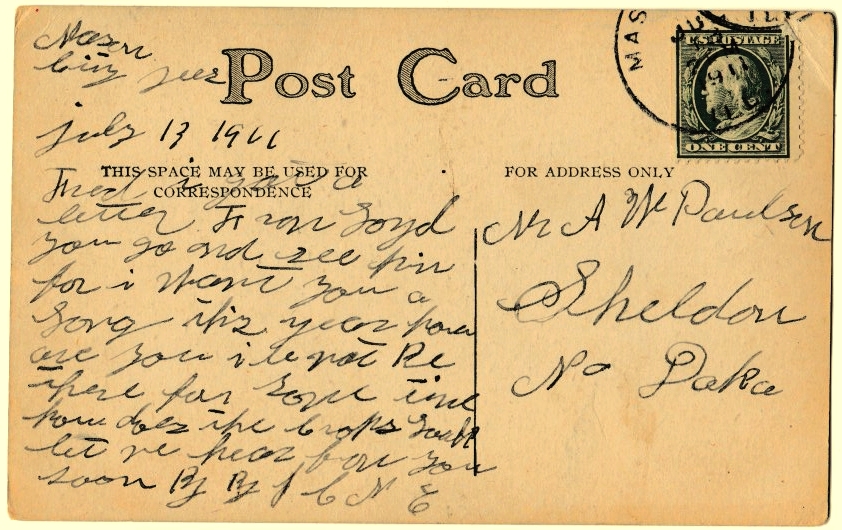 Mason
City
Post Card
MAS
JUL
1911
U.S. POSTAGE
ONE CENT
july 13 1911
THIS SPACE MAY BE USED FOR
CORRESPONDENCE
FOR ADDRESS ONLY
Fred i got a
letter From
you go and see him
for i want you a
long this year how
are you i le not Be
there for some time
how does the crops look
let me hear from you
soon By By J C N E
Mr A W Paulson
Sheldon
No Daka